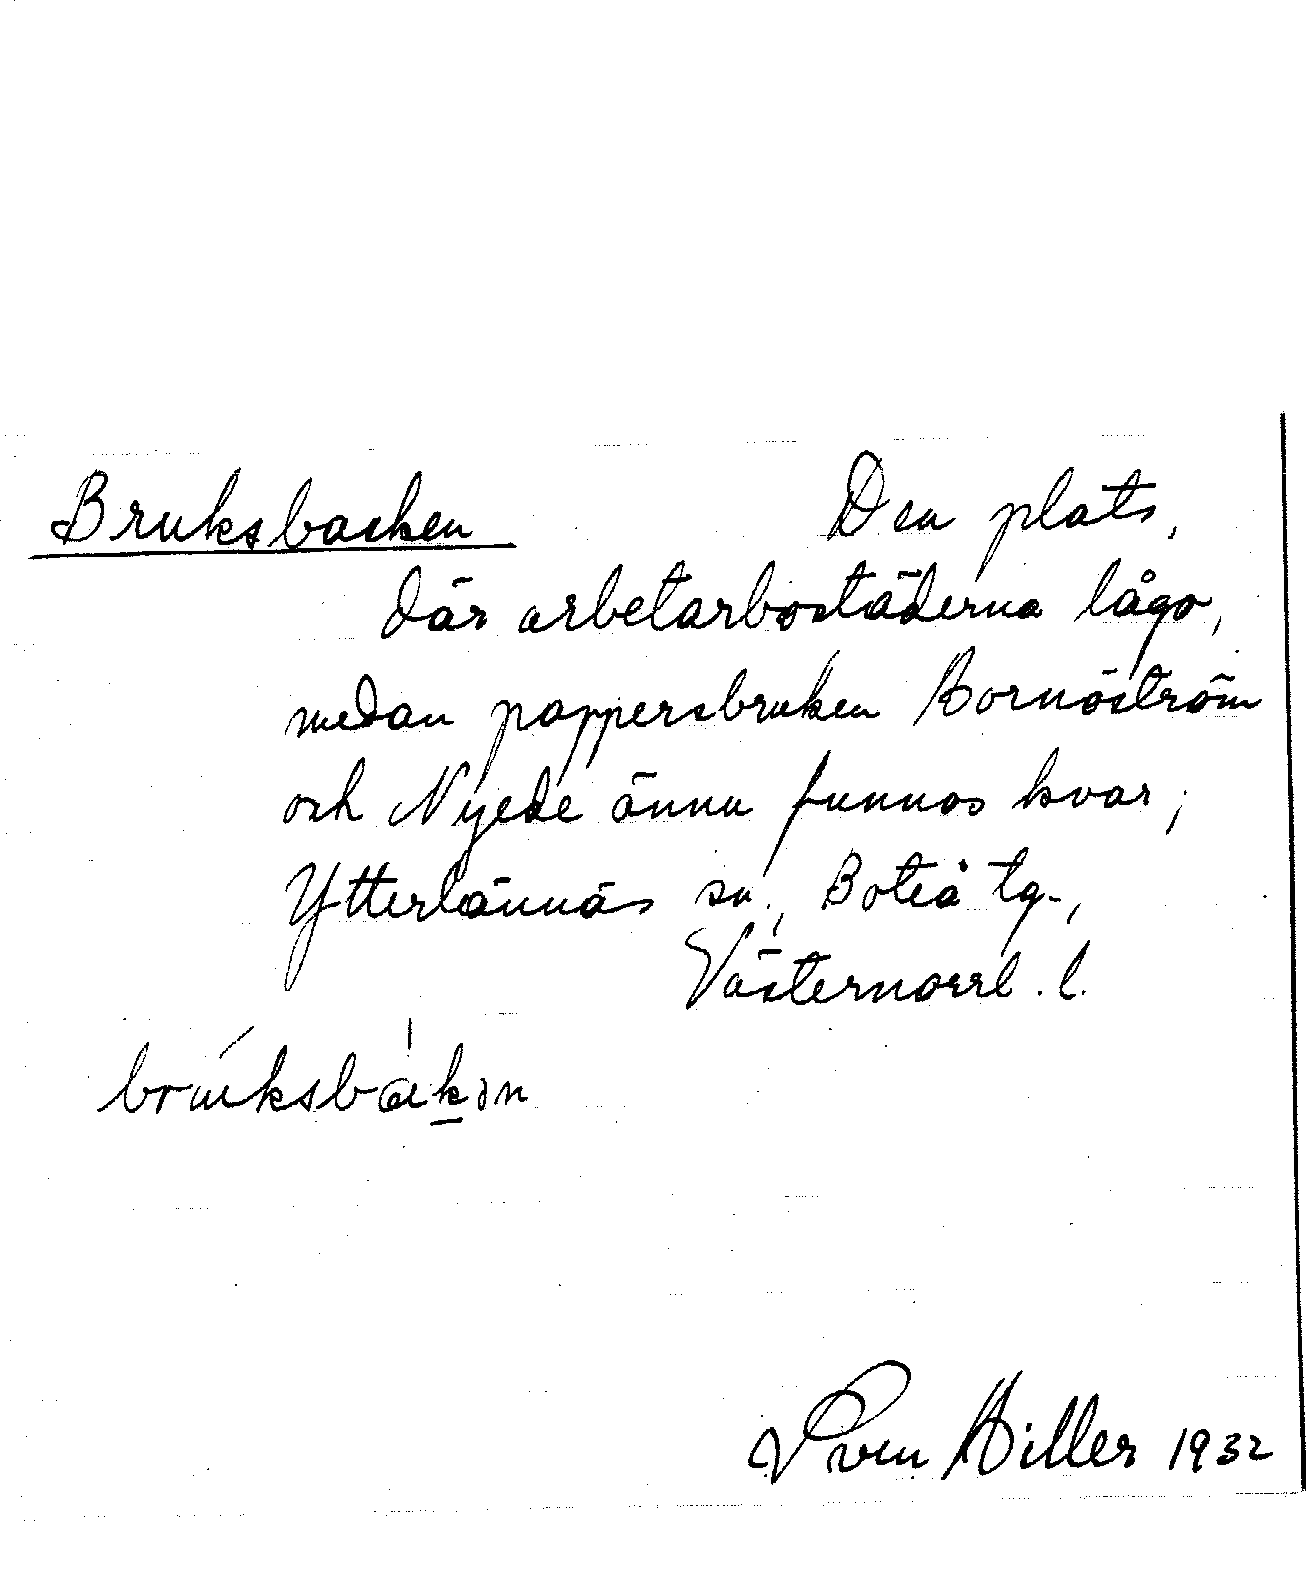 Bruksbacken Den plats,
där arbetarbostäderna lågo,
medan pappersbruken Bornöström
och Nyede ännu funnos kvar;
Ytterlännäs sn, Boteå tg.,
Västernorrl. l.
Sven Hiller 1932